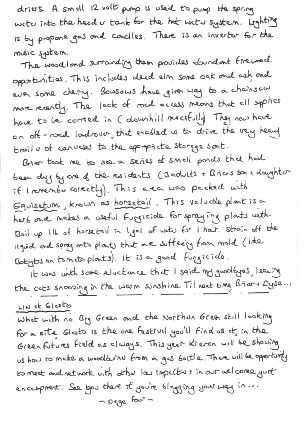 drives. A small 12 volt pump is used to pump the spring
water into the header tank for the hot water system. Lighting
is by propane gas and candles. There is an invertor for the
music system.
The woodland surrounding them provides abundant firewood
opportunities. This includes dead elm some oak and ash and
even some cherry. Bowsaws have given way to a chainsaw
more recently. The lack of road access means that all supplies
have to be carried in (downhill mercifully). They now have
an off-road landrover, that enabled us to drive the very heavy
trailer of canvases to the appropriate storage spot.
Briar took me to see a series of small ponds that had
been dug by one of the residents (3 adults + Briars son & daughter
if I remember correctly). This area was packed with
Equisetum, known as horsetail. This valuable plant is a
herb and makes a useful fungicide for spraying plants with.
Boil up 1lb of horsetail in 1 gal of water for 1 hour. Strain off the
liquid and spray onto plants that are suffering from mold (like
Botrytis on tomato plants). It is a good fungicide.
It was with some reluctance that I said my goodbyes, leaving
the cats snoozing in the warm sunshine. Till next time Briar +
LIW at Glasto
What with no Big Green and the Northern Green still looking
for a site Glasto is the one festival you'll find us at, in the
Green futures field as always. This year Kieren will be showing
us how to make a woodburner from a gas bottle. There will be opportunity
to meet and network with other low impactors in our welcome yurt
encampment. See you there if you're blagging your way in...
- Page Four -